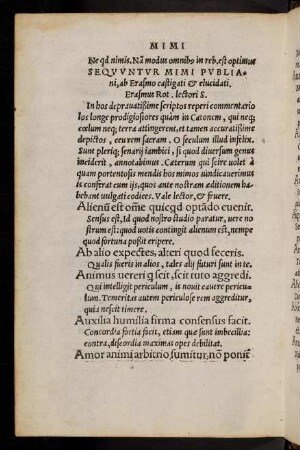 MIMI
Ne qd nimis. Nā modus omnibᵒ in reb. est optimus
SEQVVNTVR MIMI PVBLIA-
ni, ab Erasmo castigati & elucidati.
Erasmus Rot. lectori S.
In hos deprauatißime scriptos reperi commentario
los longe prodigiosiores quàm in Catonem, qui neq;
cœlum neq; terrā attingerent, et tamen accuratißime
depictos, ceu rem sacram. O seculum illud infelix.
Sunt pleriq; senarij iambici, si quod diuersum genus
inciderit, annotabimus. Cæterum qui scire uolet à
quàm portentosis mendis hos mimos uindicauerimus
is conferat cum ijs, quos ante nostram æditionem ha-
bebant uulgati codices. Vale lector, & fruere.
Alienū est omē quicqd optādo euenit.
Sensus est, Id quod nostro studio paratur, uere no
strum est: quod uotis contingit alienum est, nempe
quod fortuna poßit eripere.
Ab alio expectes, alteri quod feceris.
Qualis fueris in alios, tales alij futuri sunt in te.
Animus uereri q scit, scit tuto aggredi.
Qui intelligit periculum, is nouit cauere pericu-
lum. Temeritas autem periculose rem aggreditur,
quia nescit timere.
Auxilia humilia firma consensus facit.
Concordia fortia facit, etiam quæ sunt imbecillia:
contra, discordia maximas opes debilitat.
Amor animi arbitrio sumitur, nō ponit͛